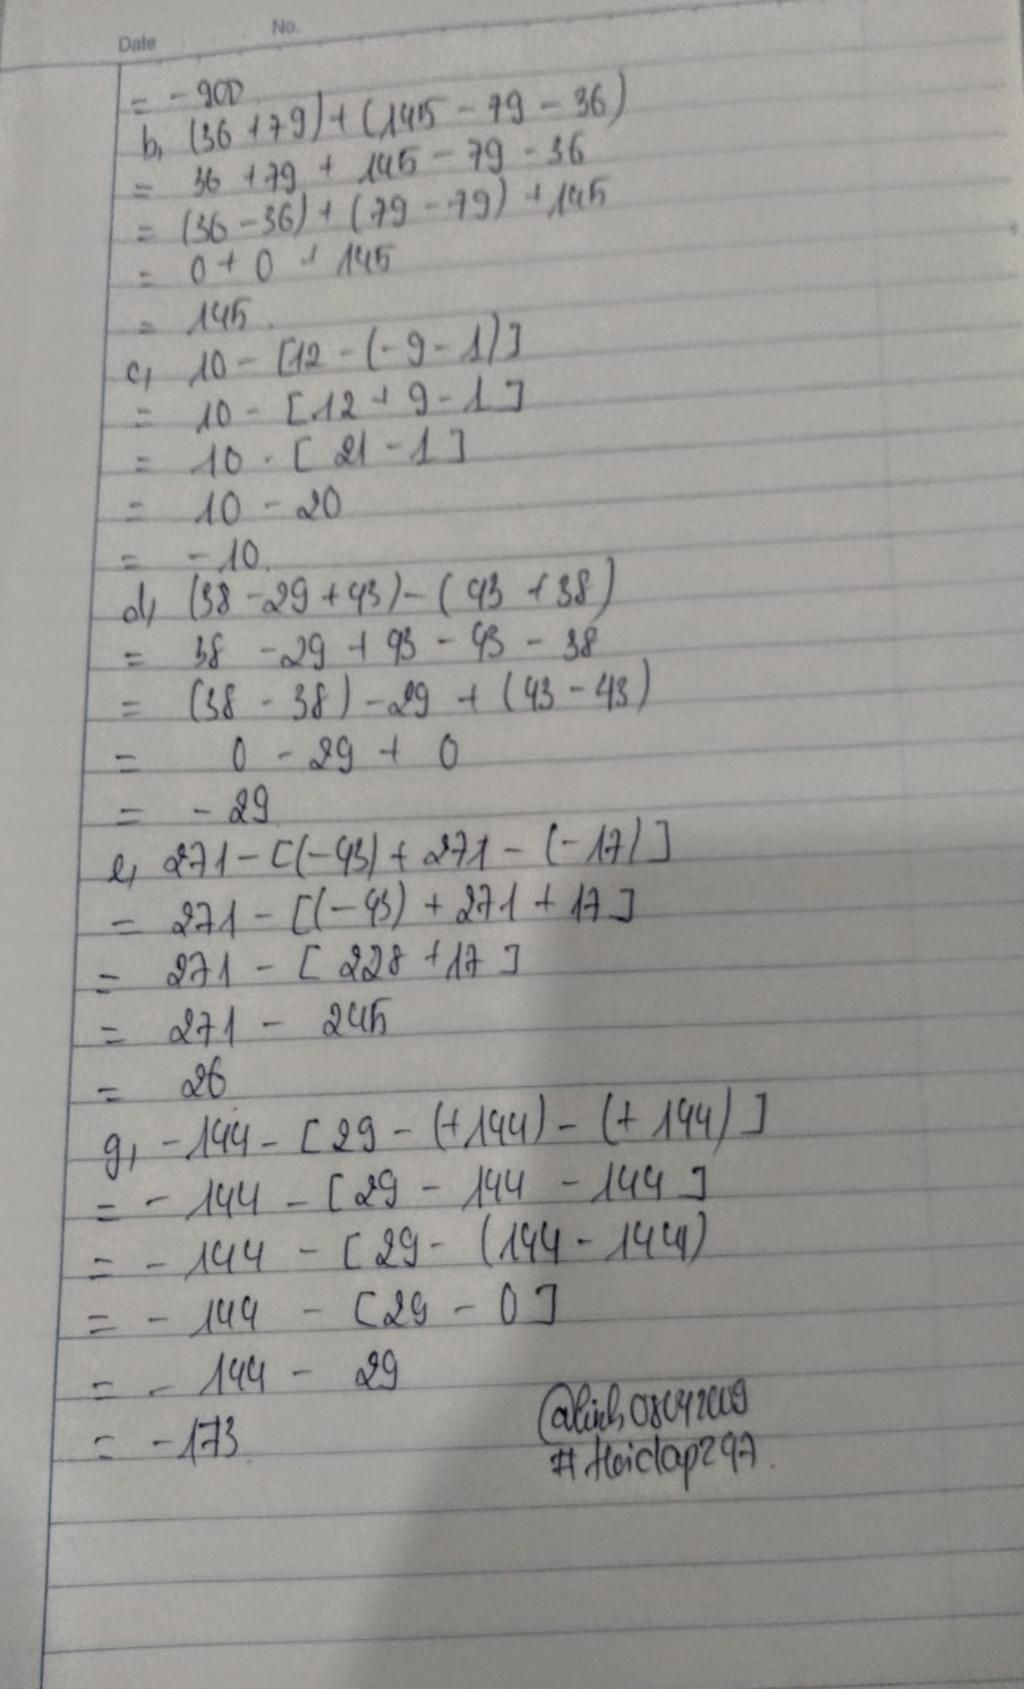 Date No.
= - 900
b, (36 + 79) + (145 - 79 - 36)
= 36 + 79 + 145 - 79 - 36
= (36 - 36) + (79 - 79) + 145
= 0 + 0 + 145
= 145.
c, 10 - [12 - (- 9 - 1)]
= 10 - [12 + 9 - 1]
= 10 - [21 - 1]
= 10 - 20
= - 10.
d, (38 - 29 + 43) - (43 + 38)
= 38 - 29 + 43 - 43 - 38
= (38 - 38) - 29 + (43 - 43)
= 0 - 29 + 0
= - 29
e, 271 - [(-43) + 271 - (-17)]
= 271 - [(-43) + 271 + 17]
= 271 - [228 + 17]
= 271 - 245
= 26
g, - 144 - [29 - (+144) - (+144)]
= - 144 - [29 - 144 - 144]
= - 144 - [29 - (144 - 144)
= - 144 - [29 - 0]
= - 144 - 29
= - 173.
@linh08042009
# Hoidap247.